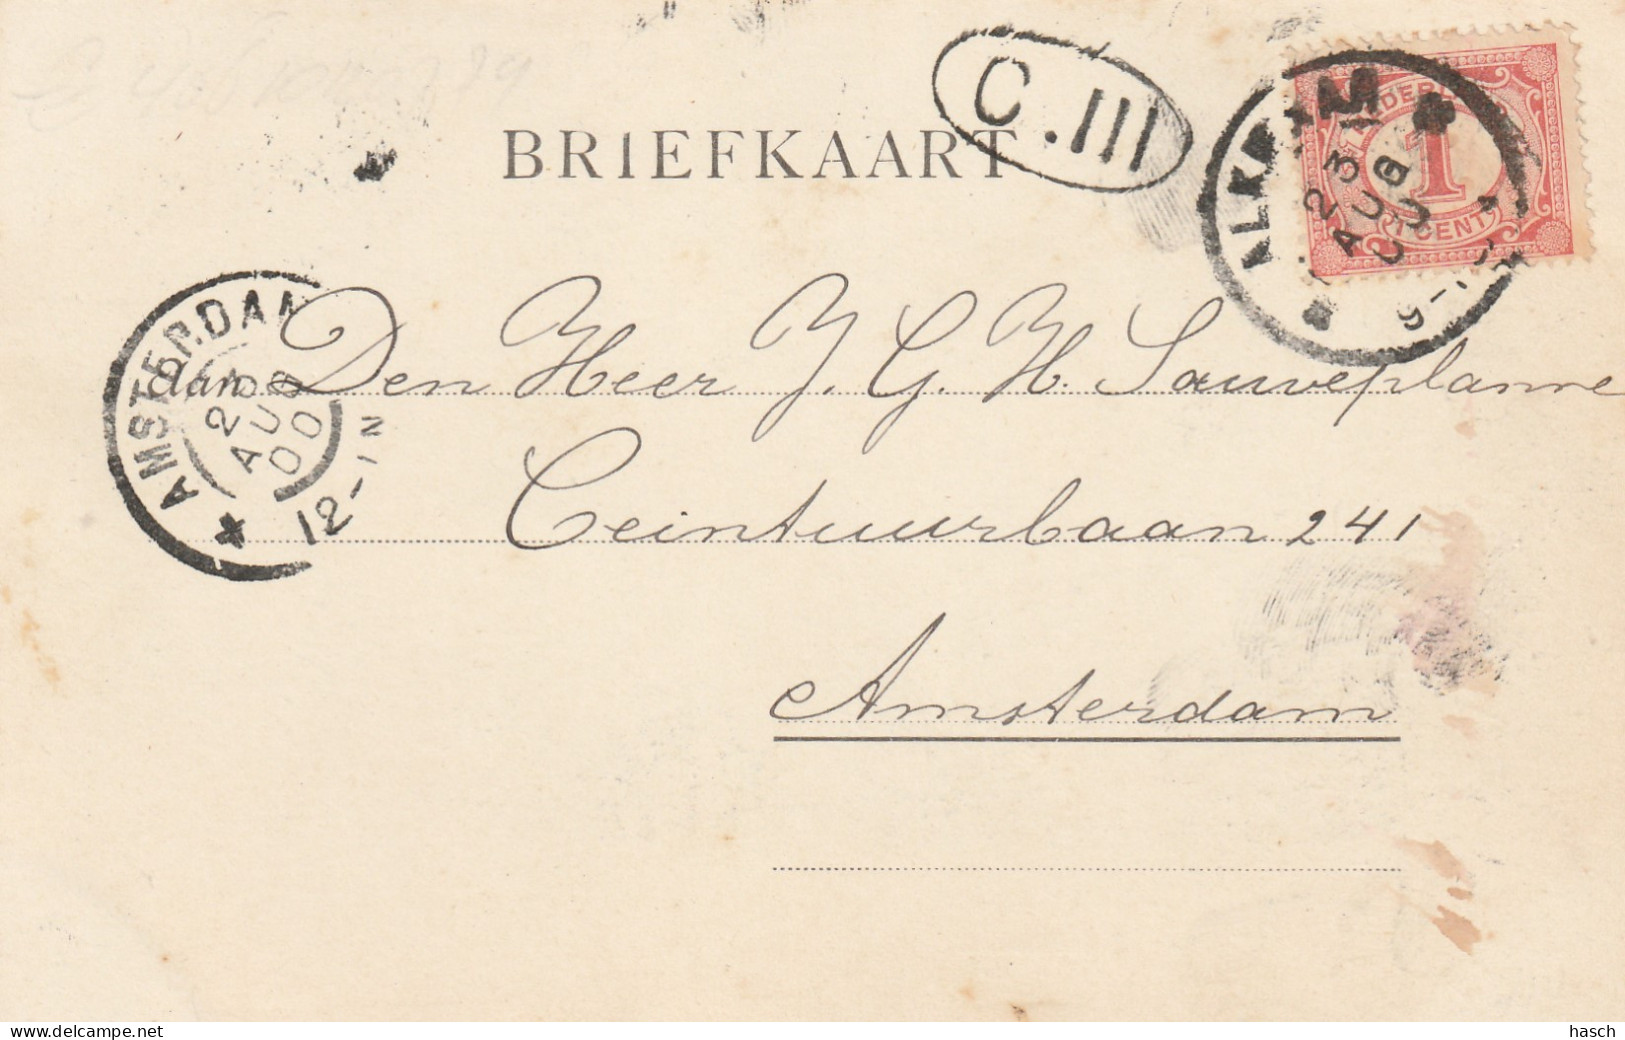 BRIEFKAART
C.III
ALKMAAR
23
AUG
00
NEDERLAND
1
1 CENT
AMSTERDAM
23
AUG
00
12-1N
Aan Den Heer J. G. H. Sauveplanne
Ceintuurbaan 241
Amsterdam
hasch
www.delcampe.net